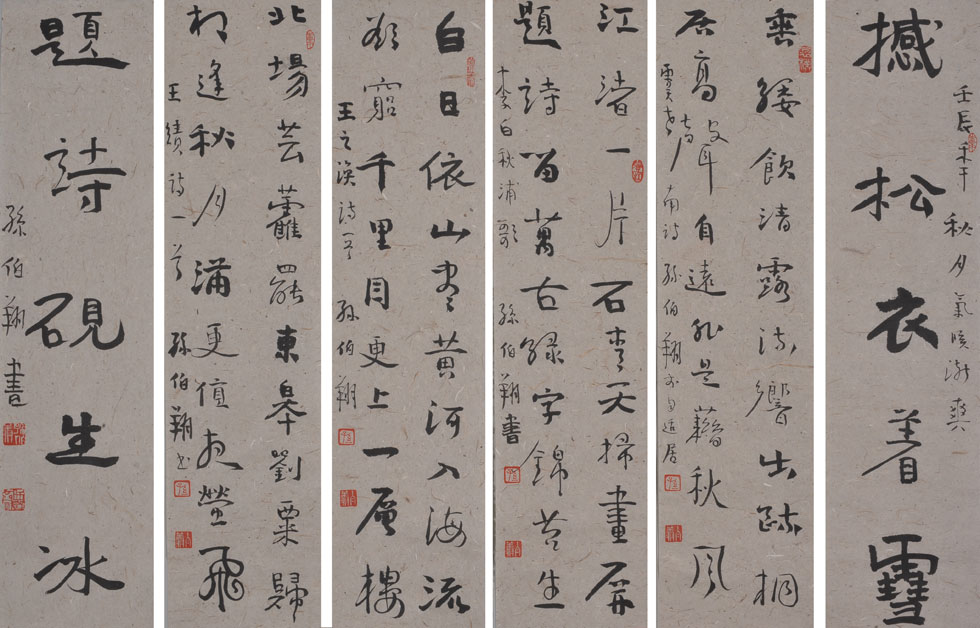 壬辰年秋月氣漸爽
撼松衣着雪
垂緌飲清露流響出踈桐
居高聲自遠非是藉秋風
虞世南詩 孫伯翔
江渚一片石青天掃畫屏
題詩留萬古綠字錦苔生
李白秋浦歌 孫伯翔書
白日依山盡黃河入海流
欲窮千里目更上一層樓
王之渙詩一首 孫伯翔
北場芸藿罷東皋劉粟歸
相逢秋月滿更值夜螢飛
王績詩一首 孫伯翔書
題詩硯生冰
孫伯翔書